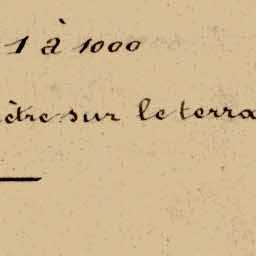 1 à 1000
ètre sur le terra